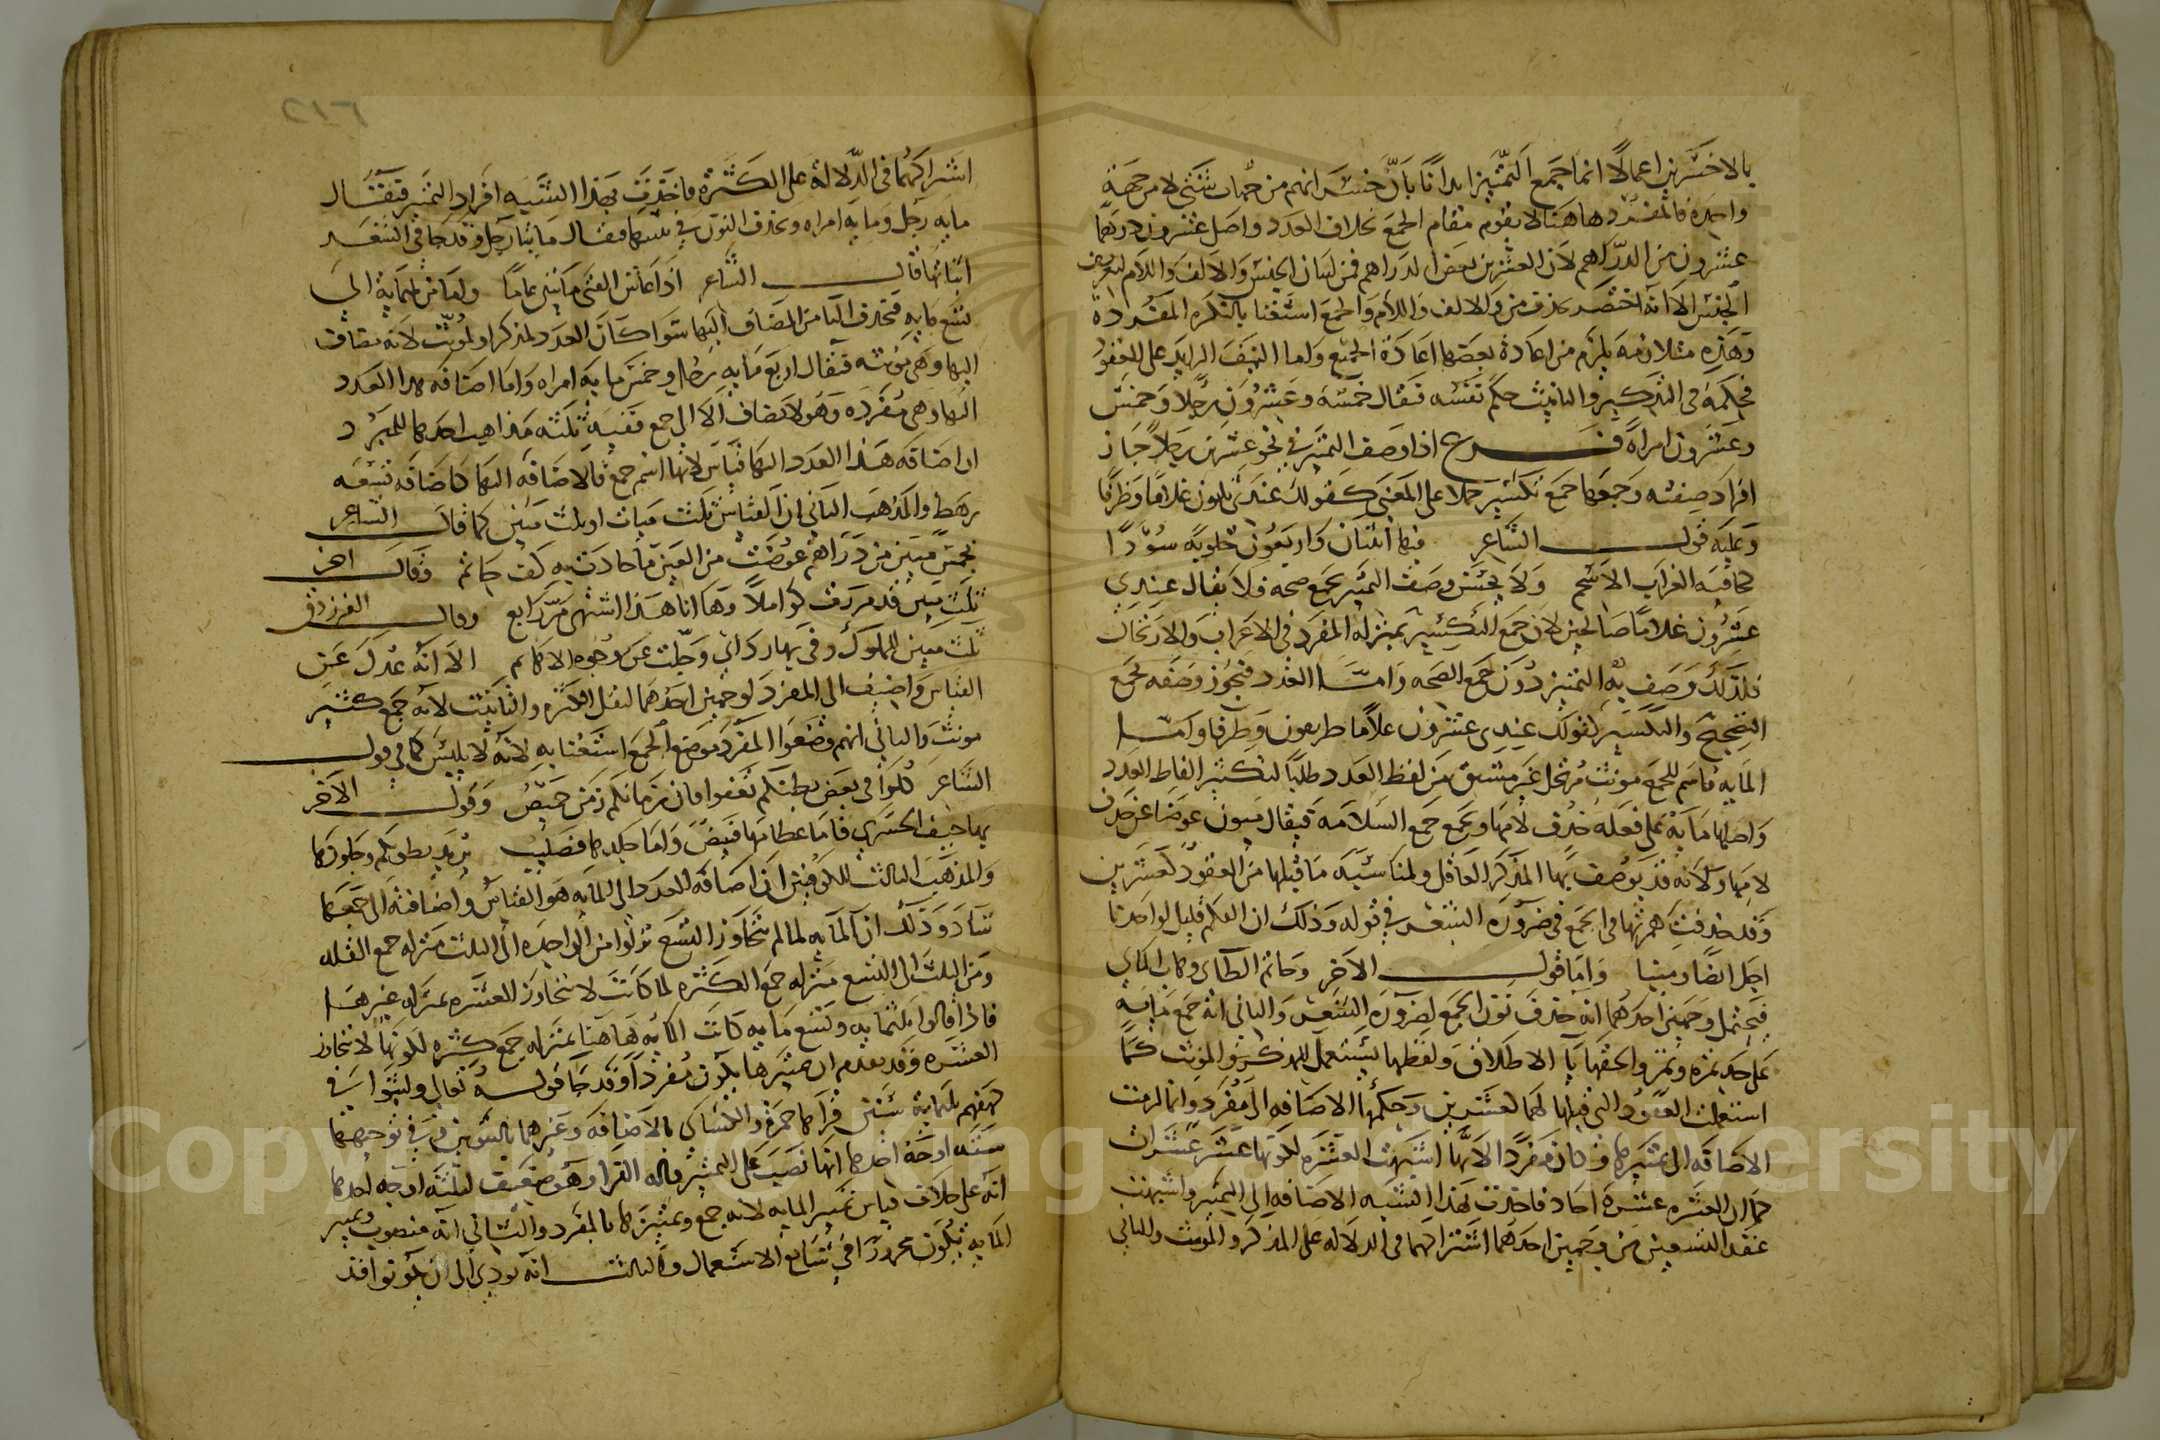 بالاخسرين اعمالا انما جمع التمييز ايذانا بان خسرانهم من جهات شتى لا من جهة
واحدة فالمفرد هاهنا لا يقوم مقام الجمع بخلاف العدد واصل عشرون درهما
عشرون من الدراهم لان العشرين بعض الدراهم فمن لبيان الجنس والالف واللام لتعريف
الجنس الا انه اختصر بحذف من والالف واللام والجمع استغنا بالنكره المفردة
وهذه متلازمة يلزم من اعادة بعضها اعادة الجميع واما النيف الزايد على العقود
فحكمه في التذكير والتانيث حكم نفسه فتقال خمسة وعشرون رجلا وخمس
وعشرون امراة فرع اذا وصف التمييز في نحو عشرين رجلا جاز
افراد صفته وجمعها جمع تكسير حملا على المعنى كقولك عندي ثلثون غلاما وظرفا
وعليه قول الشاعر فيها اثنتان واربعون حلوبة سودا
كخافية الغراب الاسحم ولا يحسن وصف المميز بجمع صحه فلا يقال عندي
عشرون غلاما صالحين لان جمع التكسير بمنزلة المفرد في الاعراب والارتجال
فلذلك وصف به التمييز دون جمع الصحه وامـا العدد فيجوز وصفه بجمع
التصحيح والتكسير كقولك عندي عشرون غلاما ظريفون وظرفا وامـا
المايه فاسم للجمع مونث مرتجل غير مشتق من لفظ العدد طلبا لتكثير الفاظ العدد
واصلها مايه على فعله حذف لامها وتجمع جمع السلامه فيقال ميون عوضا عن حذف
لامها ولانه قد يوصف بها المذكر العاقل ولمناسبة ما قبلها من العقود كعشرين
وقد حذفت همزتها في الجمع في ضرورة الشعر في قوله وذلك ان القلم قليل لواحدنا
اجل ايضا ومينا واما قول الاخر وحاتم الطاي وهاب المي
فيحتمل وجهين احدهما انه حذف نون الجمع لضرورة الشعر والثاني انه جمع مايه
على حد تمره وتمر والحقها يا الاطلاق ولفظها يستعمل للمذكر والمونث كما
استعملت العقود التي قبلها لهما لعشرين وحكمها الاضافه الى مفرد وانما لزمت
الاضافه الى مميزها وكان مفردا لانها اشبهت العشره لكونها عشر عشرات
كما ان العشره عشرة احاد فاخذت بهذا الشبه الاضافه الى المميز واشبهت
عقد التسعين من وجهين احدهما اشتراكهما في الدلاله على المذكر والمونث والثاني
٢١٦
اشتراكهما في الدلالة على الكثره فاخذت بهذا الشبه افراد المميز فتقـال
مايه رجل ومايه امراه وتحذف النون في تثنيتها فيقال مايتا رجل وقد جا في الشعر
اثباتها قال الشاعر اذا عاش الفتى مايتين عاما ويضاف ثلثمايه الى
تسع مايه فتحذف التا من المضاف اليها سوا كان العدد لمذكر او لمونث لانه مضاف
اليها وهي مونثه فيقال اربع مايه رجل وخمس مايه امراه واما اضافه هذا العدد
اليها وهي مفرده وهو لا يضاف الا الى جمع ففيه ثلثه مذاهب احدها للمبرد
ان اضافه هذا العدد اليها قياس لانها اسم جمع فالاضافه اليها كاضافه تسعه
رهط والمذهب الثاني ان القياس ثلث ميات او ثلث مئين كما قال الشاعر
بخمس ميين من دراهم عوضت من العنز ما جادت به كف حاتم وقال اخر
ثلث ميين قد مررن كواملا وها انا هذا اشتهي مر رابع وقال الفرزدق
ثلث ميين للملوك وفى بها ردائي وجلت عن وجوه الاهاتم الا انه عدل عن
القياس واضيف الى المفرد لوجهين احدهما لثقل الكثره والتانيث لانه جمع كثير
مونث والثاني انهم وضعوا المفرد موضع الجمع استغنا به لانه لا يلبس كما في قول
الشاعر كلوا في بعض بطنكم تعفوا فان زمانكم زمن خميص وقول الاخر
بها جيف الحسرى فاما عظامها فبيض واما جلدها فصليب يريد بطونكم وجلودها
والمذهب الثالث للكوفيين ان اضافه العدد الى المايه هو القياس واضافته الى جمعها
شاذ وذلك ان المايه لما لم تتجاوز التسع نزلوا من الواحده الى الثلث منزله جمع القله
ومن الثلث الى التسع منزله جمع الكثره لما كانت لا تتجاوز العشره بمنزله غيرهـا
فاذا قالوا ثلثمايه وتسع مايه كانت المايه هاهنا بمنزله جمع كثره لكونها لا تتجاوز
العشره وقد تقدم ان مميزها يكون مفردا وقد جا قوله تعالى ولبثوا في
كهفهم ثلثماية سنين قراها حمزة والكساي بالاضافه وغيرهما بالتنوين وفي توجيهها
سته اوجه احدها انها نصب على التمييز قاله الفرا وهو ضعيف لثلثه اوجه احدها
انه على خلاف قياس تمييز المايه لانه جمع وتمييزها بالمفرد والثاني انه منصوب وتمييز
المايه يكون مجرورا في شايع الاستعمال والثالث انه يودي الى ان يكونوا قد
Copyright © King Saud University